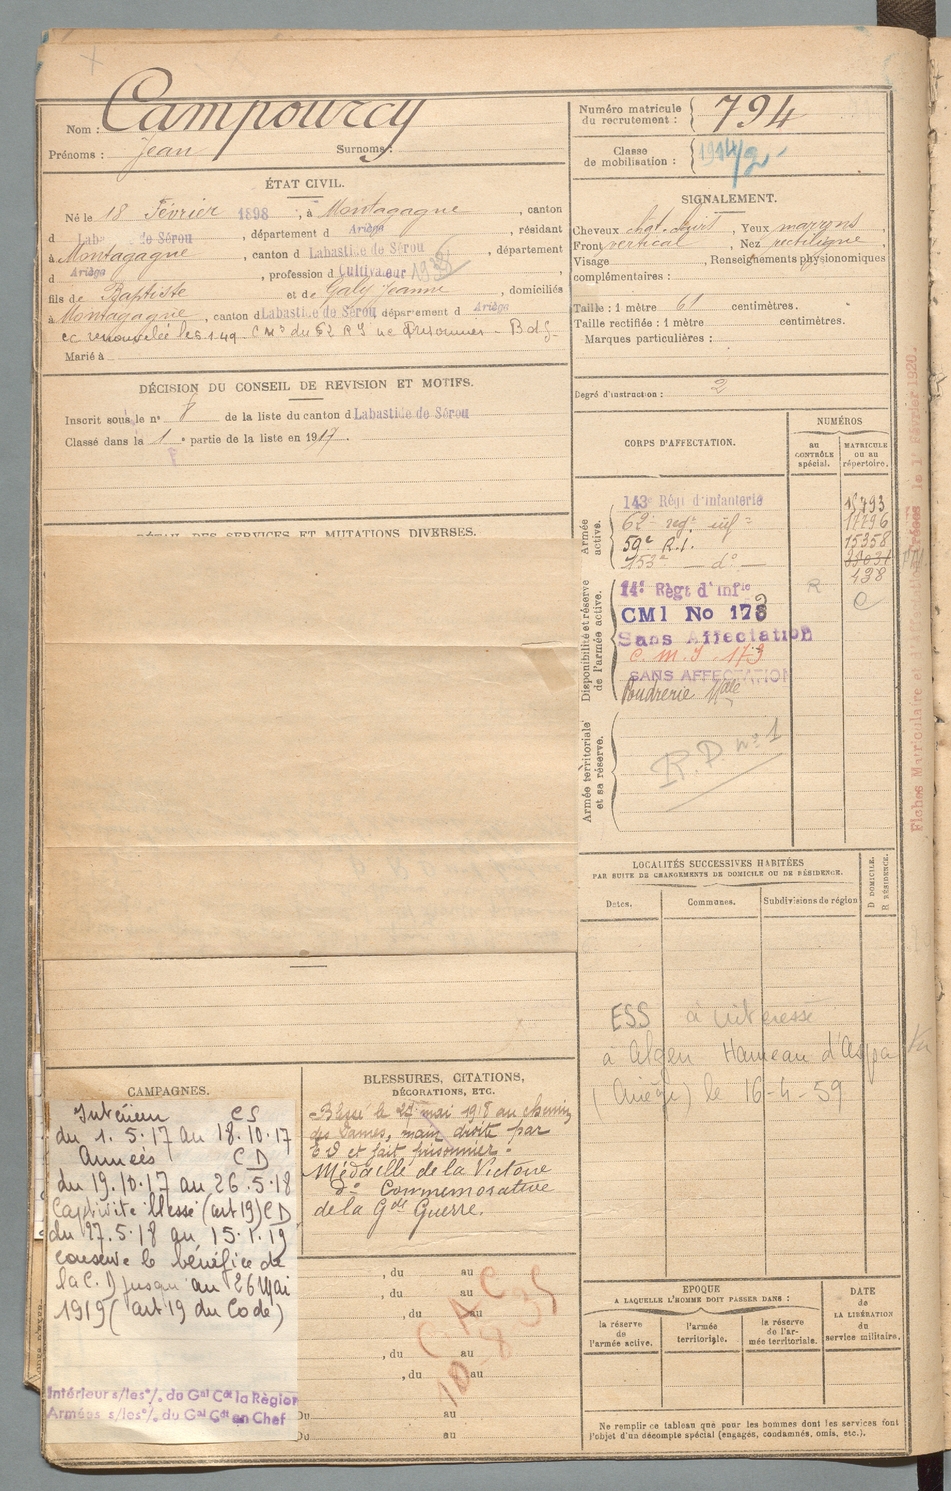 Nom : Campourcy
Prénoms : Jean Surnoms :
Numéro matricule du recrutement : 794
Classe de mobilisation : 1914/2
ÉTAT CIVIL.
Né le 18 Février 1898, à Montagagne, canton
d Labastide de Sérou, département d Ariège, résidant
à Montagagne, canton d Labastide de Sérou, département
d Ariège, profession d Cultivateur
fils de Baptiste et de Galy Jeanne, domiciliés
à Montagagne, canton d Labastide de Sérou département d Ariège
cc renouvelée le 6.1.49. C Mre du 62 RI ne Prisonnier - Bdf.
Marié à
SIGNALEMENT.
Cheveux chat. , Yeux marrons
Front vertical, Nez rectiligne
Visage , Renseignements physionomiques
complémentaires :
Taille : 1 mètre 61 centimètres.
Taille rectifiée : 1 mètre centimètres.
Marques particulières :
Degré d'instruction : 2
DÉCISION DU CONSEIL DE REVISION ET MOTIFS.
Inscrit sous le n° 8 de la liste du canton d Labastide de Sérou
Classé dans la 1e partie de la liste en 1917.
DÉTAIL DES SERVICES ET MUTATIONS DIVERSES.
CORPS D'AFFECTATION.
NUMÉROS
au CONTRÔLE spécial.
MATRICULE ou au répertoire.
Armée active.
143e Régt d'infanterie
62e regt inf
59e R.I. 15358
153e — do —
438
Disponibilité et réserve de l'armée active.
14e Règt d'Infie R
CMI No 173
Sans Affectation
C. M. I. 173
SANS AFFECTATION
Poudrerie Nale
Armée territoriale et sa réserve.
R. D. no 1
Fiches Matriculaire et d'Affectation créées le 1r Février 1920.
LOCALITÉS SUCCESSIVES HABITÉES
PAR SUITE DE CHANGEMENTS DE DOMICILE OU DE RÉSIDENCE.
Dates. Communes. Subdivisions de région
D DOMICILE. R RÉSIDENCE.
ESS à intéressé
à Algen Hameau d'
(Ariège) le 16-4-59
CAMPAGNES.
Intérieur CS
du 1.5.17 au 18.10.17
Armées CD
du 19.10.17 au 26.5.18
Captivité blessé (art 19) CD
du 27.5.18 au 15.1.19
conserve le bénéfice de
la C.D jusqu'au 26 Mai
1919 (art 19 du Code)
Intérieur s/les°/. du Gal Cdt la Région
Armées s/les°/. du Gal Cdt en Chef
BLESSURES, CITATIONS,
DÉCORATIONS, ETC.
Blessé le 27 mai 1918 au chemin
des Dames, main droite par
E O et fait prisonnier.
Médaille de la Victoire
do Commemorative
de la Gde Guerre.
, du au
, du au
, du au
, du au
, du au
Du au
Du au
C A C
10-8 35
EPOQUE
A LAQUELLE L'HOMME DOIT PASSER DANS :
la réserve de l'armée active.
l'armée territoriale.
la réserve de l'armée territoriale.
DATE de LA LIBÉRATION du service militaire.
Ne remplir ce tableau que pour les hommes dont les services font
l'objet d'un décompte spécial (engagés, condamnés, omis, etc.).